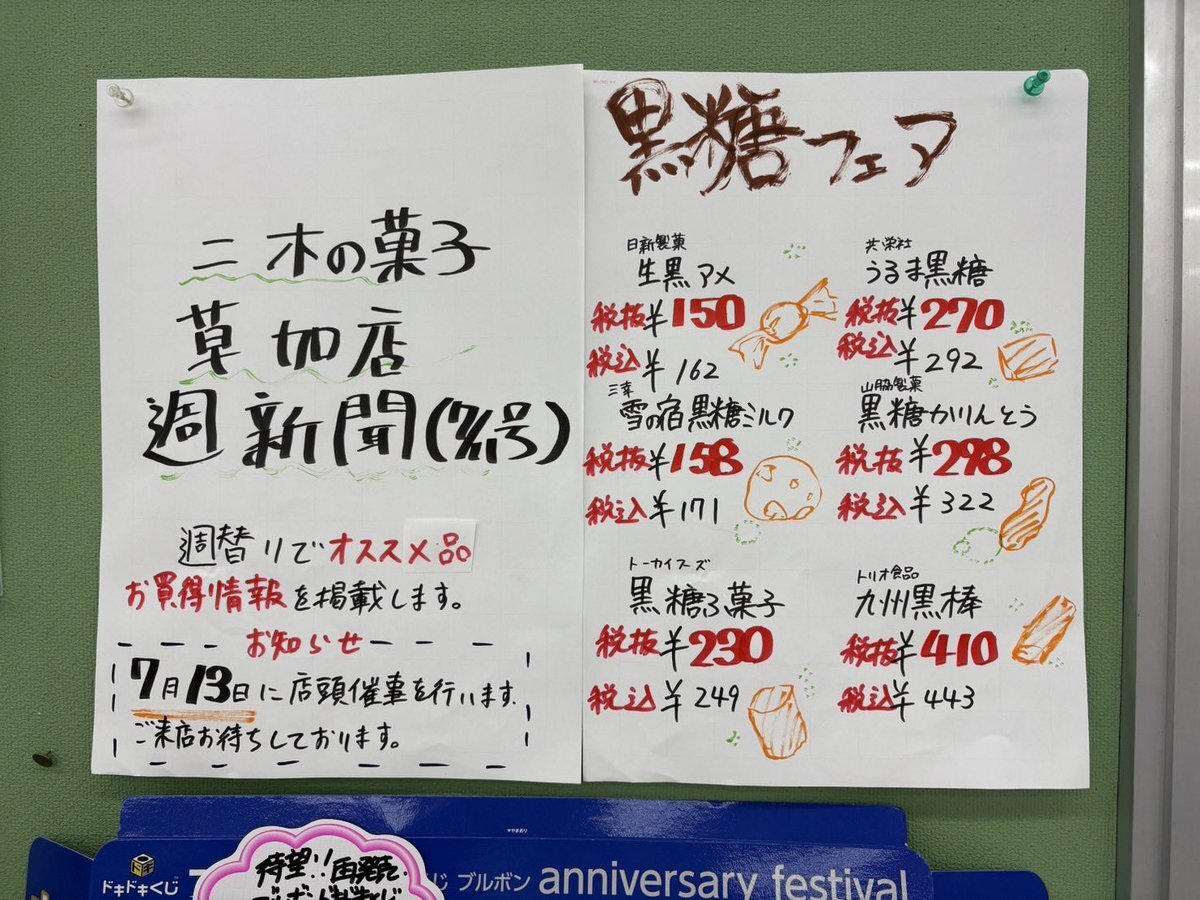 二木の菓子
草加店
週新聞(7/1号)
週替りでオススメ品
お買得情報を掲載します。
お知らせ
7月13日に店頭催事を行います.
ご来店お待ちしております。
黒糖フェア
日新製菓
生黒アメ
税抜¥150
税込¥162
共栄社
うるま黒糖
税抜¥270
税込¥292
三幸
雪の宿黒糖ミルク
税抜¥158
税込¥171
山脇製菓
黒糖かりんとう
税抜¥298
税込¥322
トーカイフーズ
黒糖ふ菓子
税抜¥230
税込¥249
トリオ食品
九州黒棒
税抜¥410
税込¥443
ドキドキくじ
待望!!再発売
くじ ブルボン anniversary festival